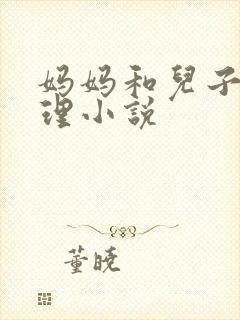 妈妈和兒子
理小说
董晓